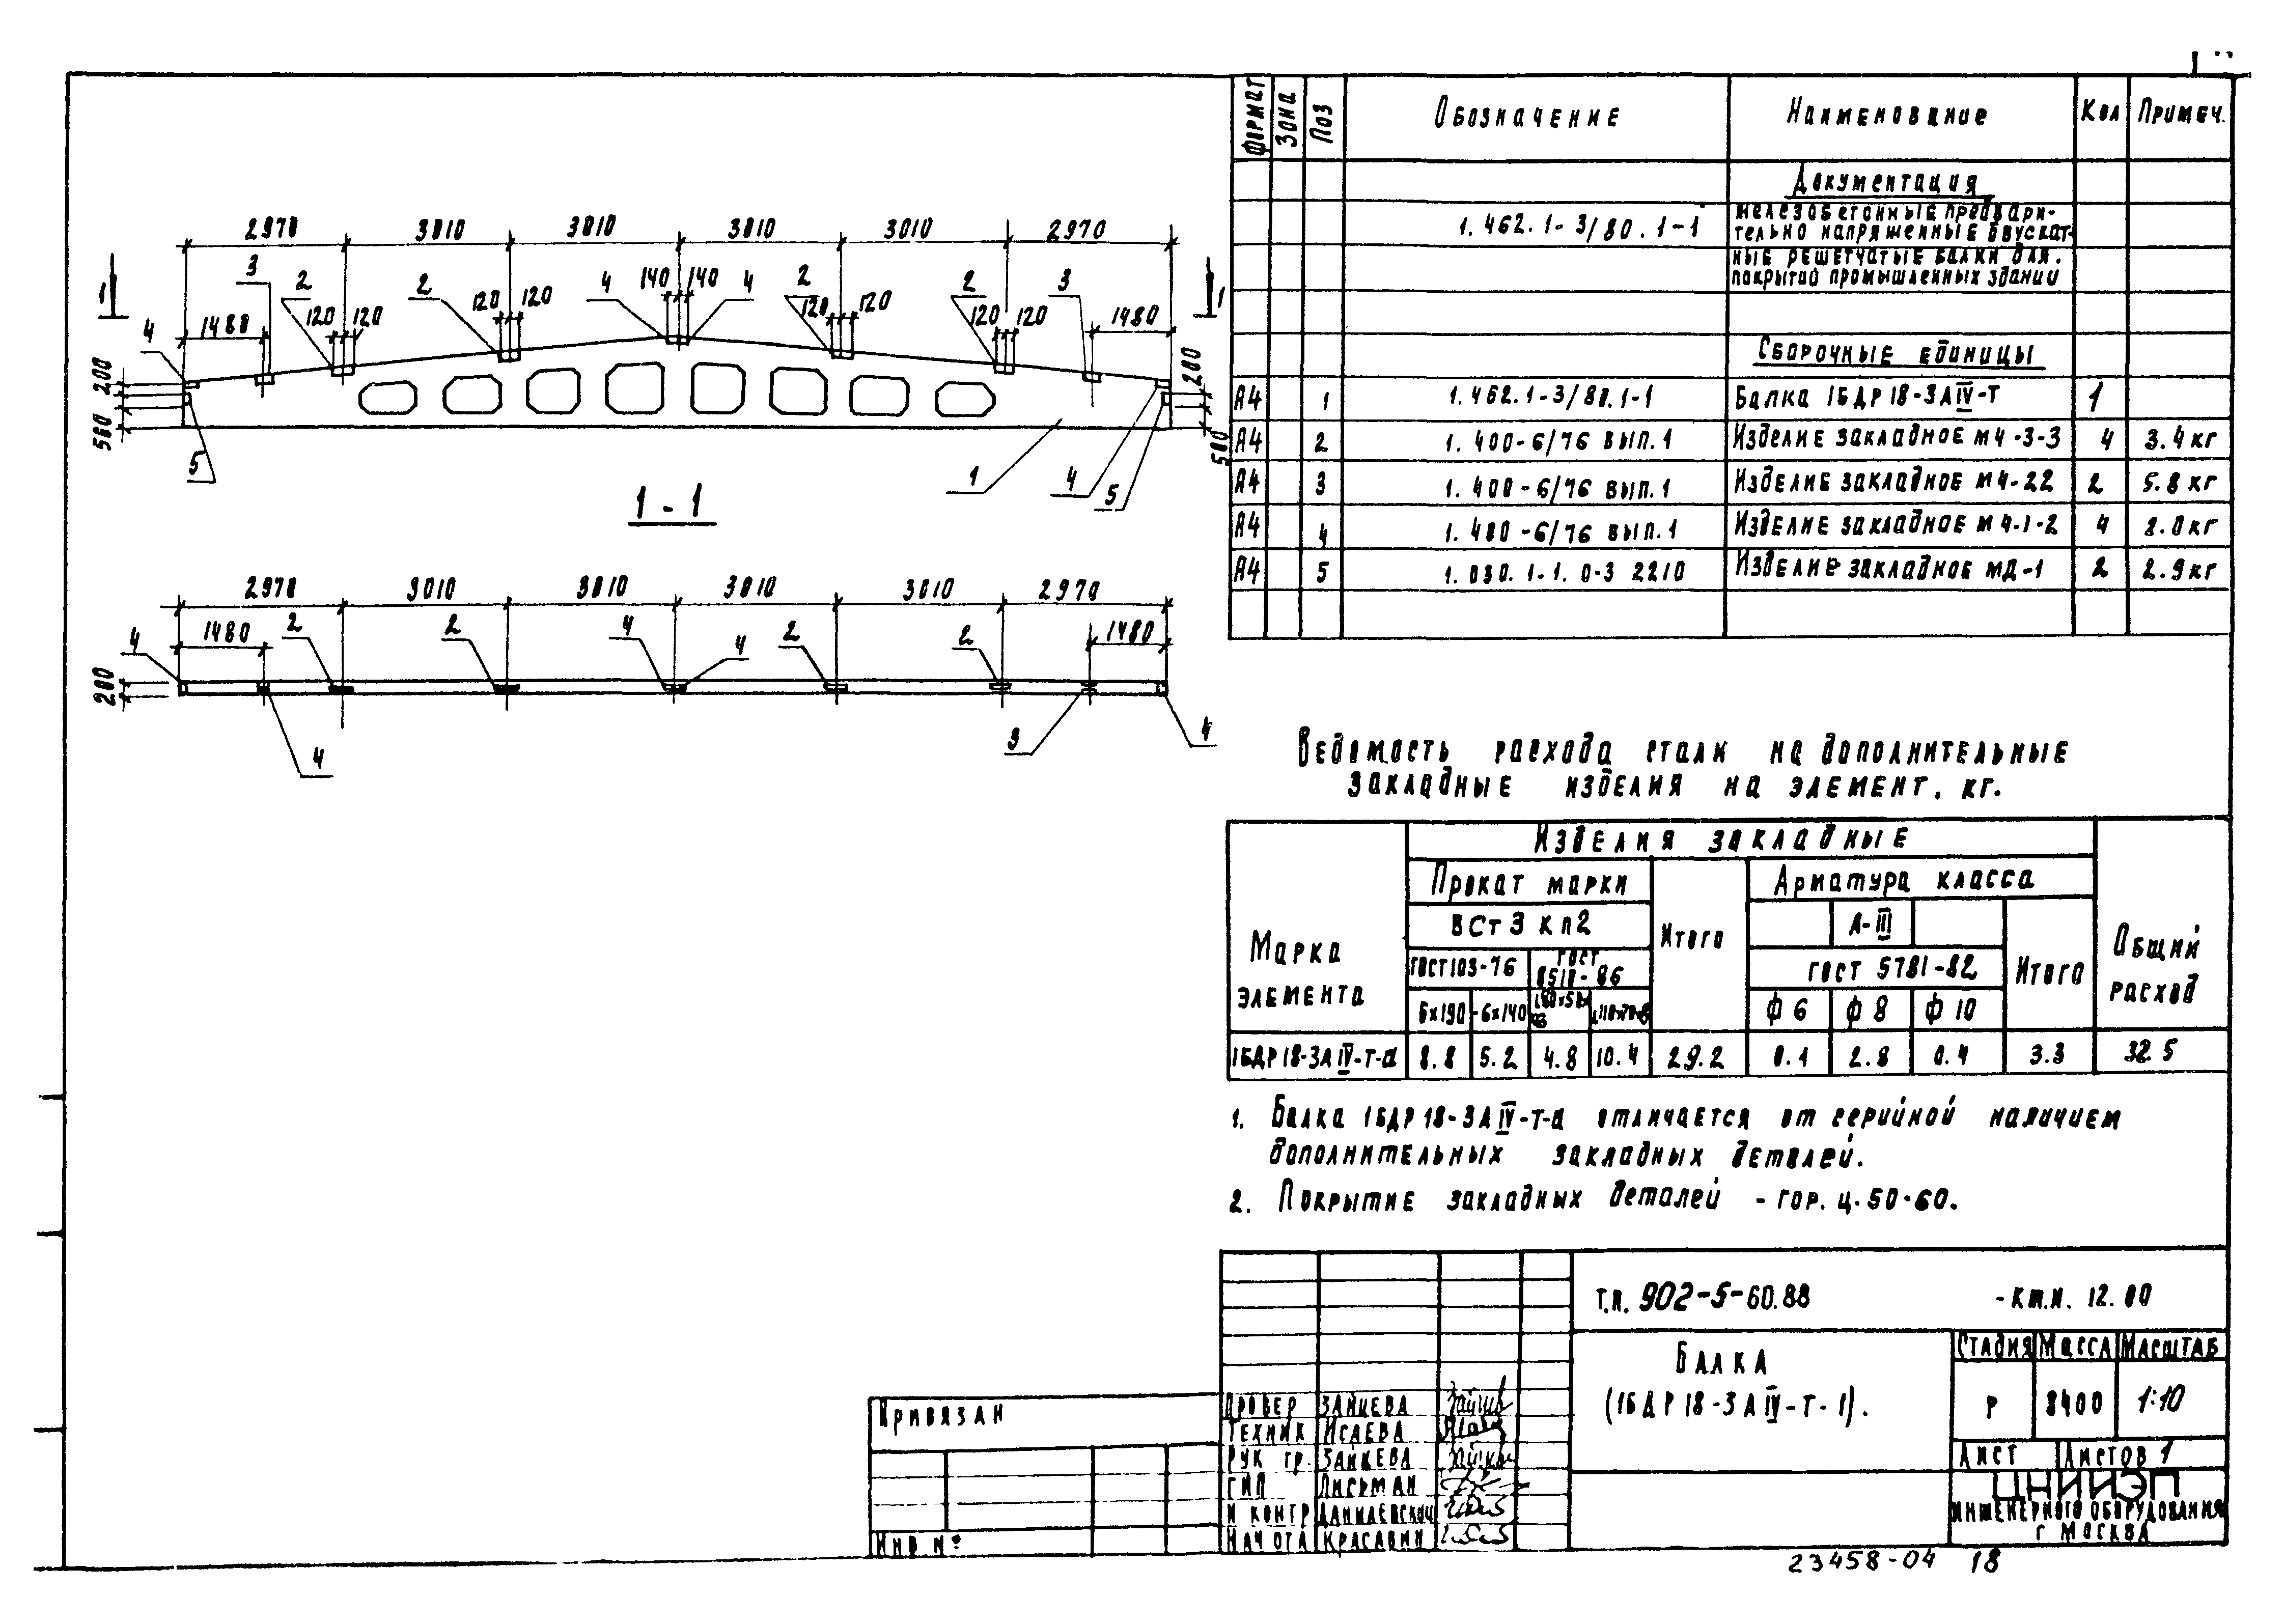 2970 3010 3010 3010 3010 2970
3 2 2 4 140 140 4 2 2 3
1 1
120 120 120 120 120 120 120 120
4 1480 1480
200 200
560 500
5 1 4 5
1-1
2970 3010 3010 3010 3010 2970
4 1480 2 2 4 4 2 2 1480
200
4 3 4
Формат Зона Поз Обозначение Наименование Кол Примеч.
Документация
1.462.1-3/80.1-1 железобетонные предвари-
тельно напряженные двускат-
ные решетчатые балки для
покрытий промышленных зданий
Сборочные единицы
А4 1 1.462.1-3/80.1-1 Балка 1БДР18-3АIV-Т 1
А4 2 1.400-6/76 вып.1 Изделие закладное М4-3-3 4 3.4кг
А4 3 1.400-6/76 вып.1 Изделие закладное М4-22 2 5.8кг
А4 4 1.400-6/76 вып.1 Изделие закладное М4-1-2 4 2.0кг
А4 5 1.030.1-1.0-3 2210 Изделие закладное МД-1 2 2.9кг
Ведомость расхода стали на дополнительные
закладные изделия на элемент, кг.
Марка элемента Изделия закладные Общий расход
Прокат марки Итого Арматура класса
ВСт3кп2 А-III Итого
ГОСТ103-76 ГОСТ 8510-86 ГОСТ 5781-82
6х190 -6х140 ф6 ф8 ф10
1БДР18-3АIV-Т-а 8.8 5.2 4.8 10.4 29.2 0.1 2.8 0.4 3.3 32.5
1. Балка 1БДР18-3АIV-Т-а отличается от серийной наличием
дополнительных закладных деталей.
2. Покрытие закладных деталей - гор. ц.50-60.
Т.П. 902-5-60.88 -КЖ.И. 12.00
Балка
(1БДР18-3АIV-Т-1).
Стадия Масса Масштаб
Р 8400 1:10
Лист Листов 1
ЦНИИЭП
инженерного оборудования
г. Москва
Провер Зайцева
Техник Исаева
Рук гр. Зайцева
ГИП Письман
Н контр Данилевский
Нач ота Красавин
Привязан
Инв.№
23458-04 18